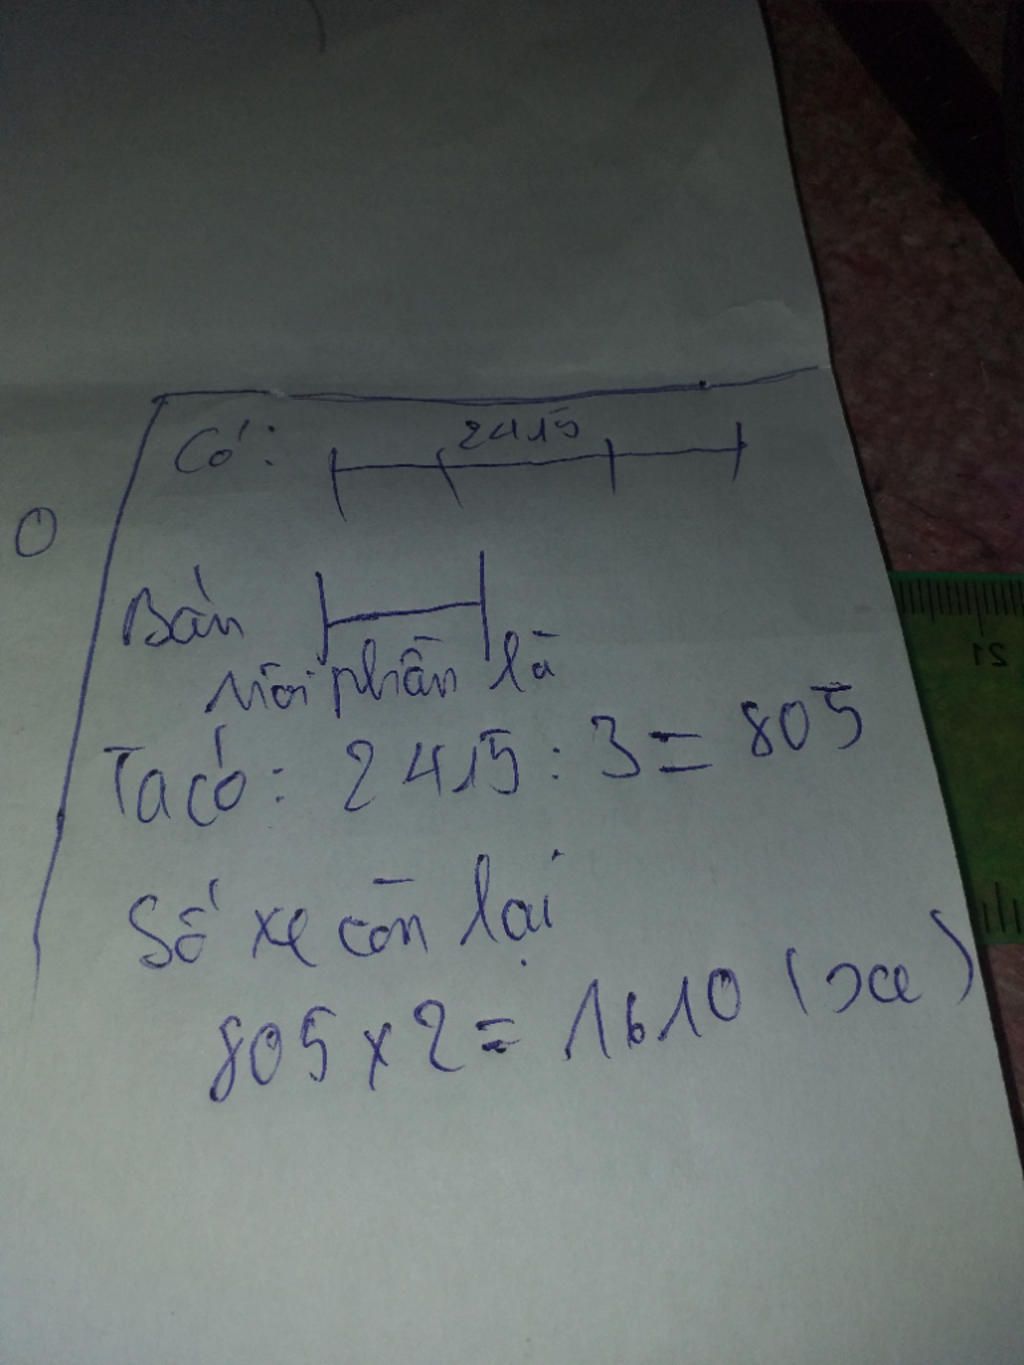 2415
Có:
O
Bán
Mỗi phần là
Ta có: 2415 : 3 = 805
Số xe còn lại
805 x 2 = 1610 (xe)
21